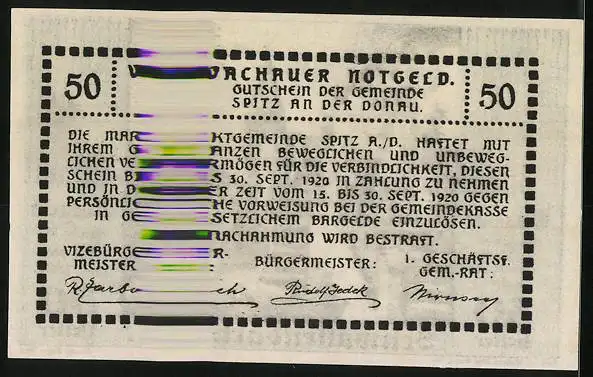 WACHAUER NOTGELD.
50 GUTSCHEIN DER GEMEINDE 50
SPITZ AN DER DONAU.
DIE MARKTGEMEINDE SPITZ A./D. HAFTET MIT
IHREM GANZEN BEWEGLICHEN UND UNBEWEG-
LICHEN VERMÖGEN FÜR DIE VERBINDLICHKEIT, DIESEN
SCHEIN BIS 30. SEPT. 1920 IN ZAHLUNG ZU NEHMEN
UND IN DER ZEIT VOM 15. BIS 30. SEPT. 1920 GEGEN
PERSÖNLICHE VORWEISUNG BEI DER GEMEINDEKASSE
IN GESETZLICHEM BARGELDE EINZULÖSEN.
NACHAHMUNG WIRD BESTRAFT.
VIZEBÜRGER-
MEISTER BÜRGERMEISTER: 1. GESCHÄFTSF.
GEM.-RAT:
Rudolf